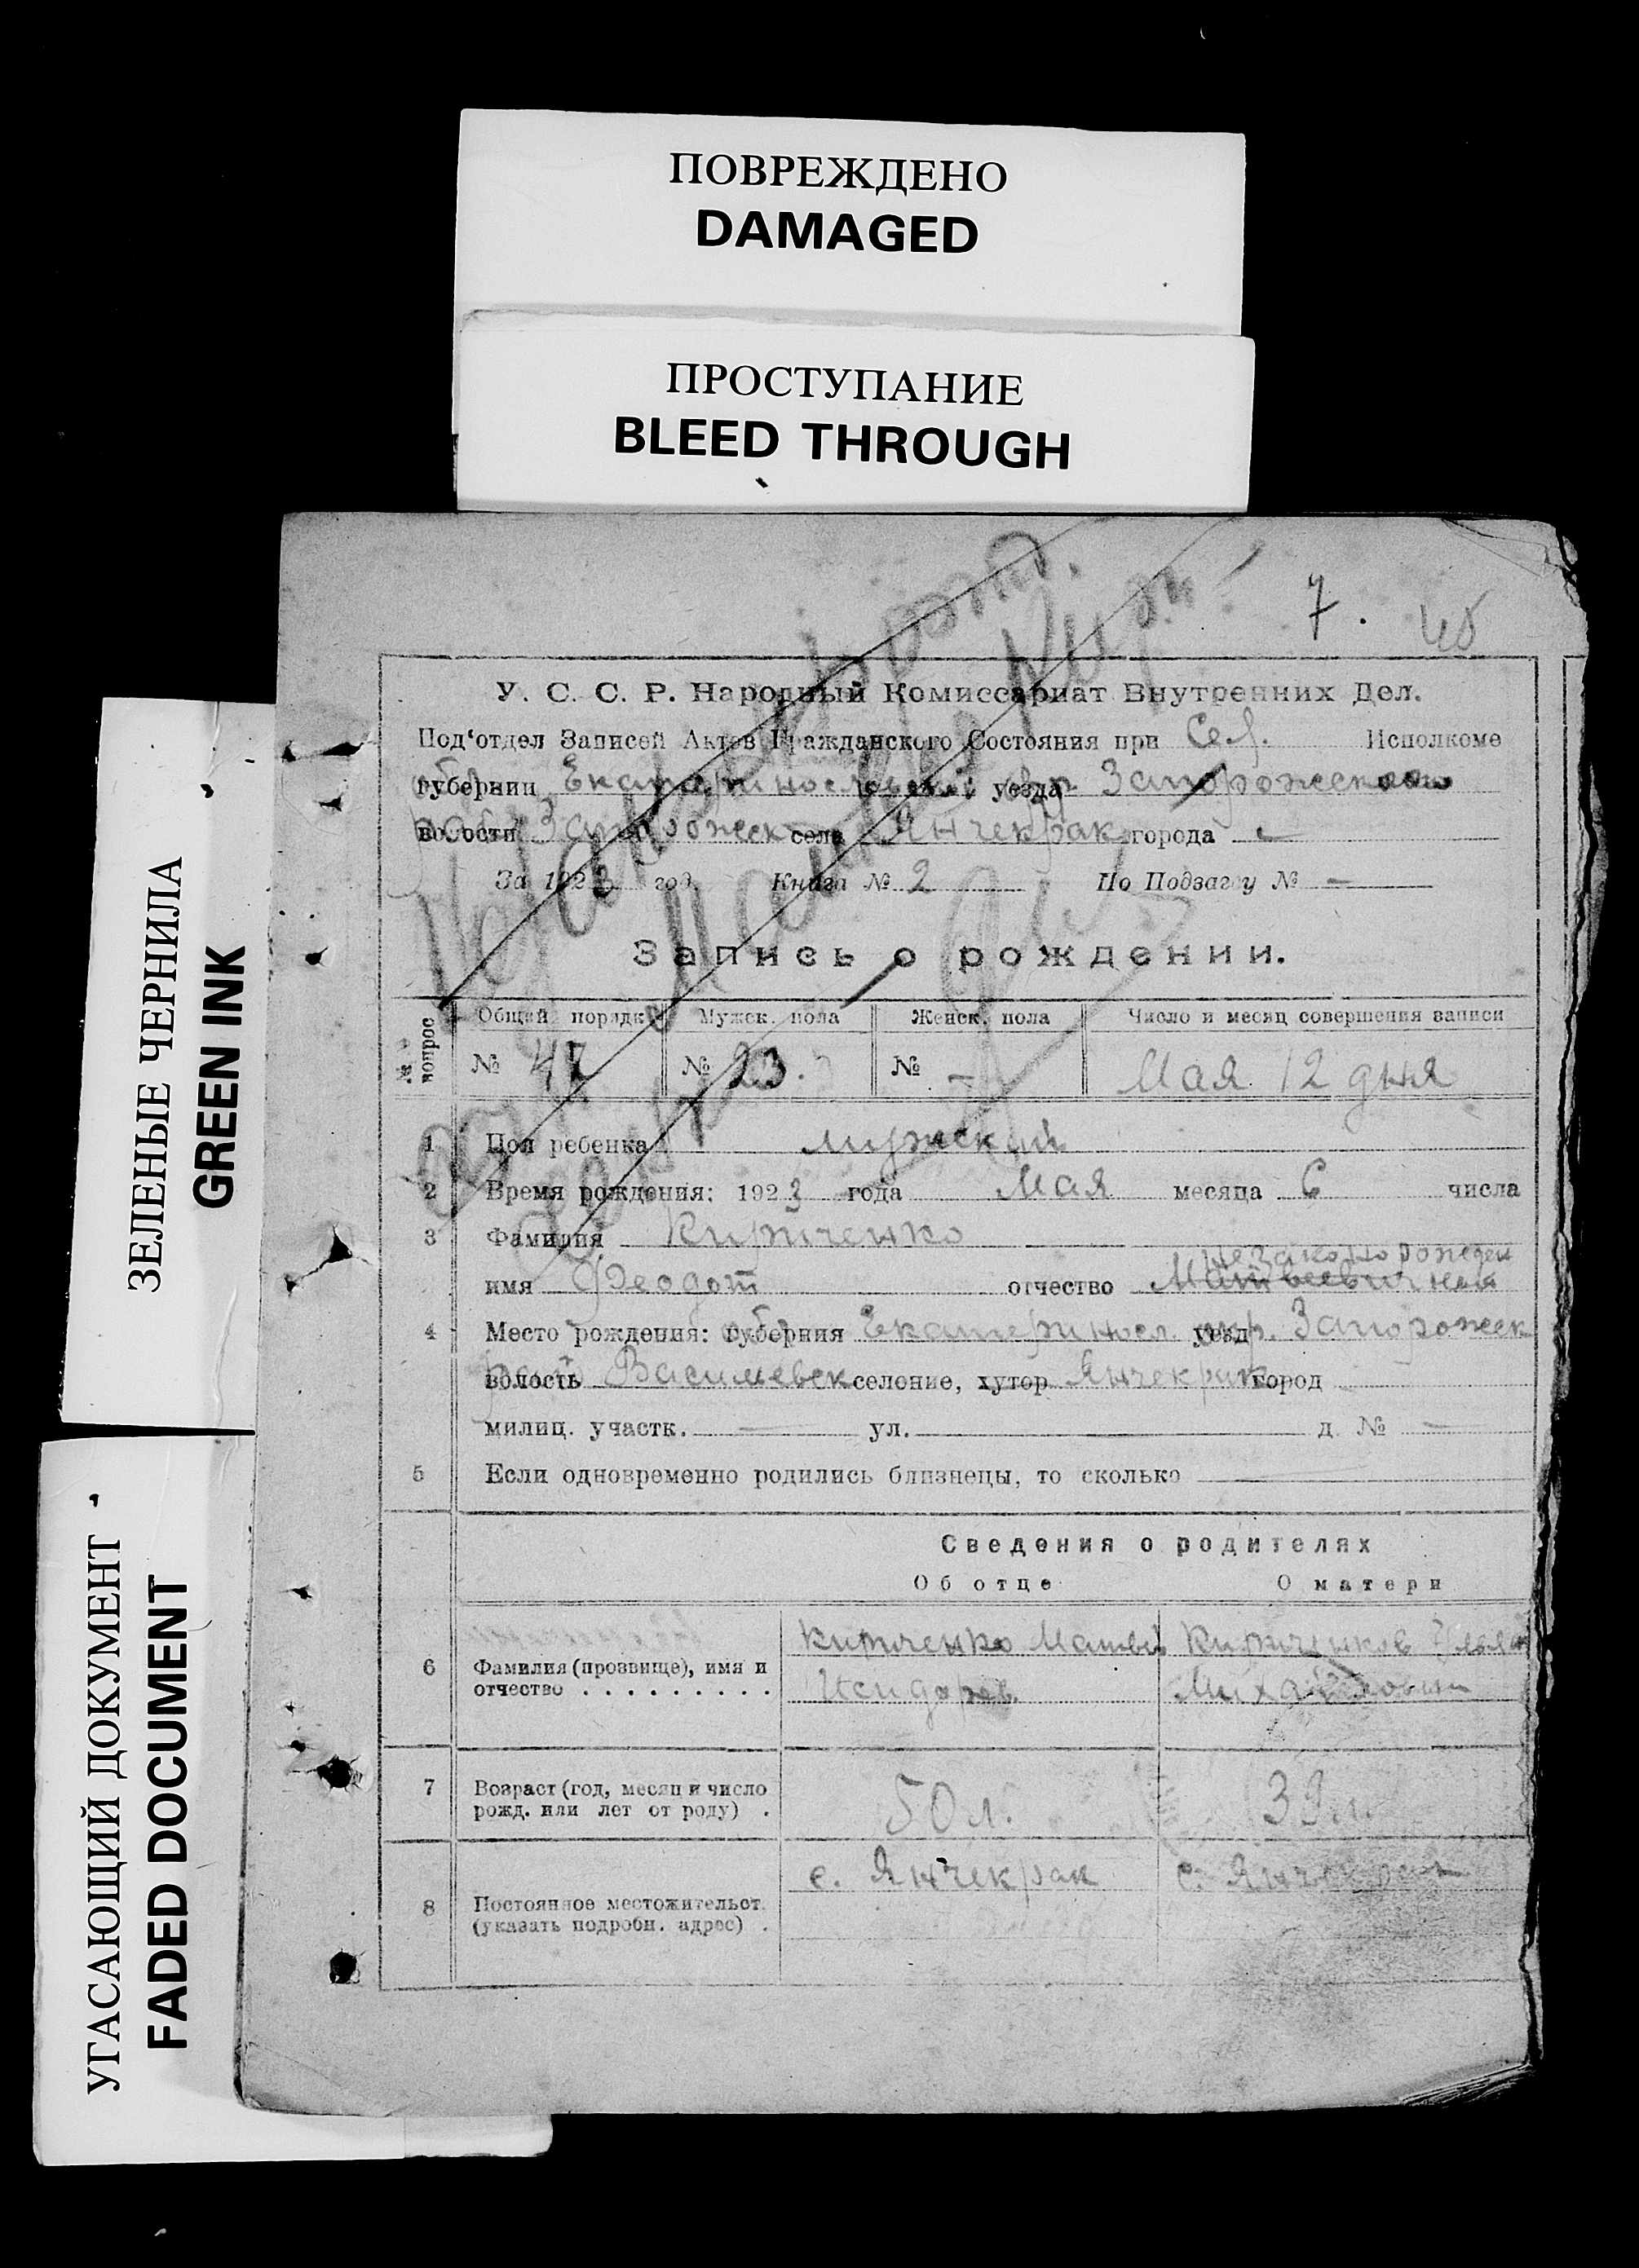 ПОВРЕЖДЕНО
DAMAGED
ПРОСТУПАНИЕ
BLEED THROUGH
ЗЕЛЕНЫЕ ЧЕРНИЛА
GREEN INK
УГАСАЮЩИЙ ДОКУМЕНТ
FADED DOCUMENT
7.
У. С. С. Р. Народный Комиссариат Внутренних Дел.
Под'отдел Записей Актов Гражданского Состояния при Сел. Исполкоме
губернии Екатеринославской уезда окр. Запорожского
волости Запорожск села Янчекрак города
За 1923 год. Книга № 2 По Подзагсу № —
Запись о рождении.
№ вопрос Общий порядк Мужск. пола Женск. пола Число и месяц совершения записи
№ 47 № 23. № — Мая 12 дня
1 Пол ребенка мужской
2 Время рождения: 1923 года Мая месяца 6 числа
3 Фамилия Кириченко
незаконорожден
имя Феодот отчество Матвеевич
4 Место рождения: губерния Екатериносл. уезд окр. Запорожск
волость район Васильевск селение, хутор Янчекрак город
милиц. участк. — ул. — д. № —
5 Если одновременно родились близнецы, то сколько
Сведения о родителях
Об отце О матери
6 Фамилия (прозвище), имя и отчество . . . . . . . . . Кириченко Матвей Исидоров.
Михайловна
7 Возраст (год, месяц и число рожд. или лет от роду) . 50 л. 39 л.
8 Постоянное местожительст. (указать подробн. адрес) . с. Янчекрак с. Янчекрак